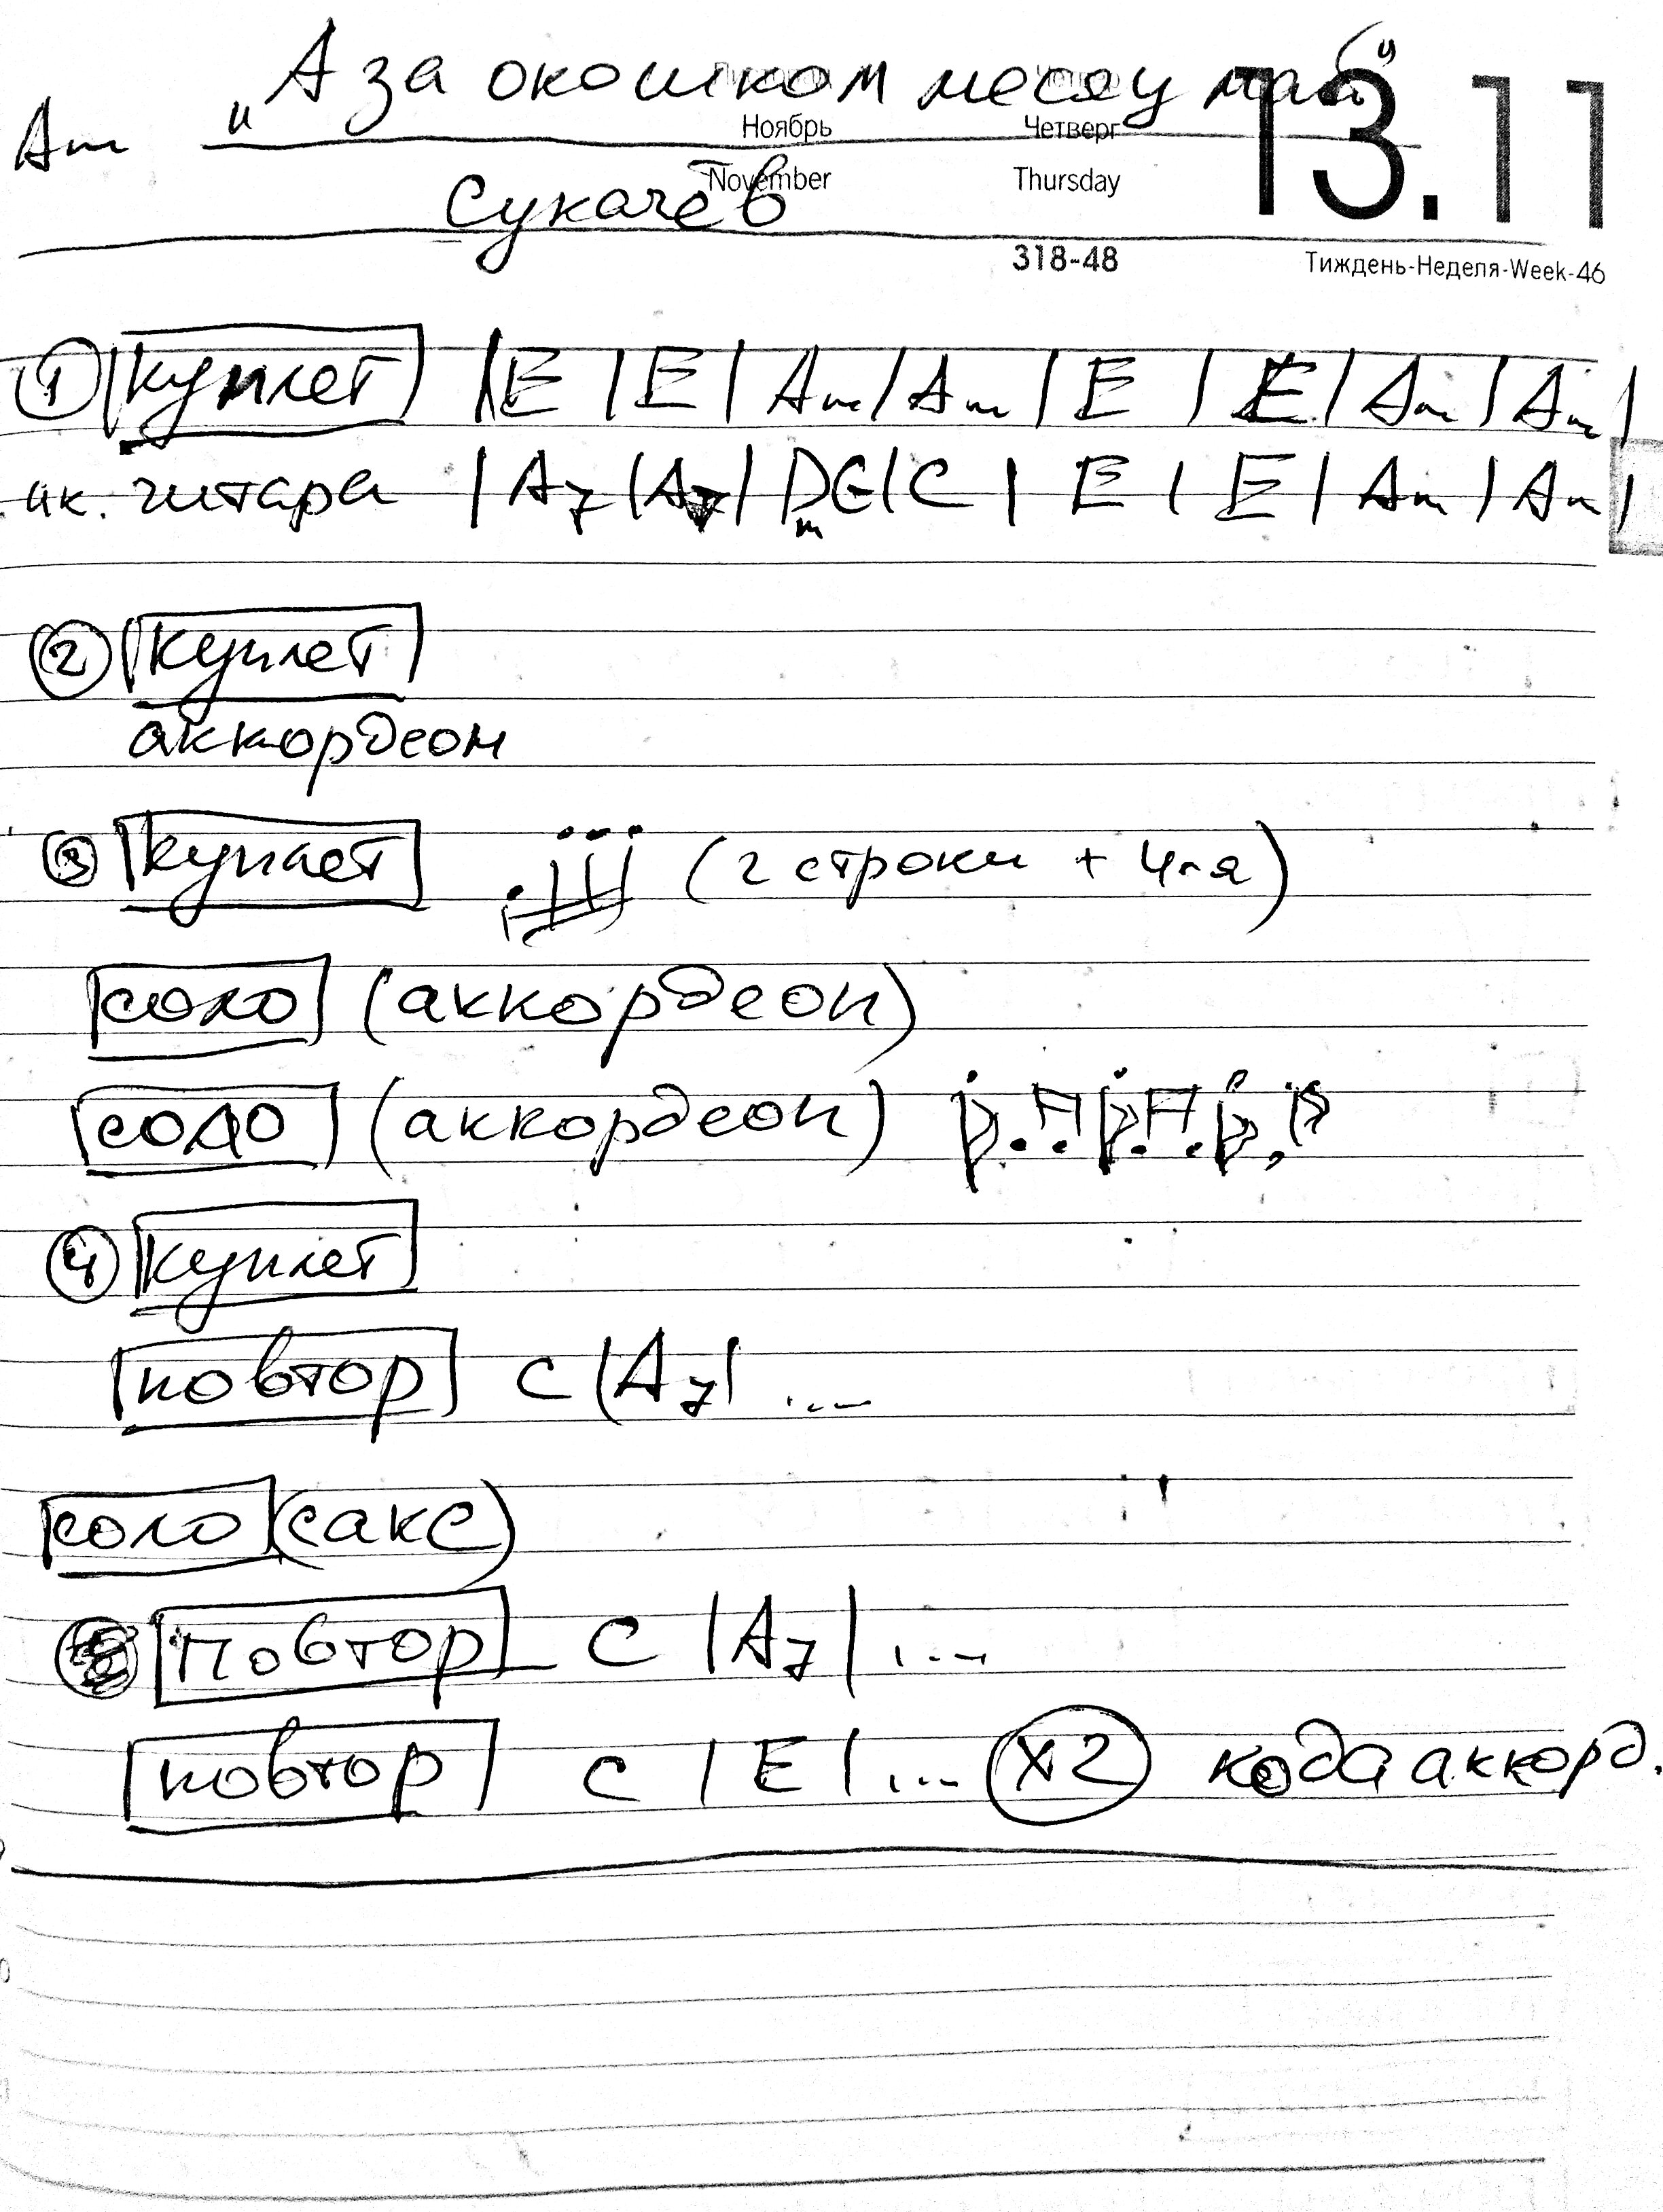 „А за окошком месяц май"
Am
Ноябрь Четверг 13.11
November Thursday
Сукачёв
318-48
Тиждень-Неделя-Week-46
1 куплет | E | E | Am | Am | E | E | Am | Am |
ак. гитара | A7 | A7 | Dm G | C | E | E | Am | Am |
2 куплет
аккордеон
3 куплет (2 строки + 4-я)
соло (аккордеон)
соло (аккордеон)
4 куплет
повтор с | A7 | ...
соло (сакс)
повтор с | A7 | ...
повтор с | E | ... x2 кода аккорд.